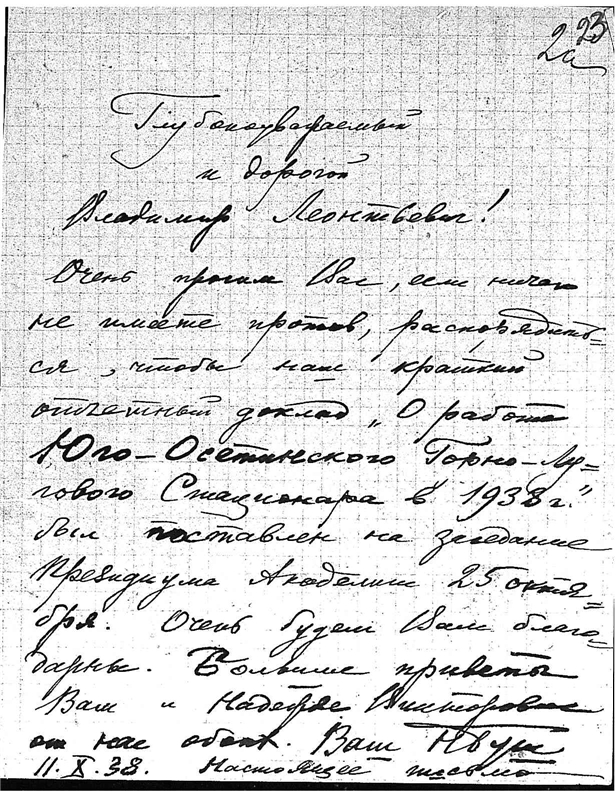 23
2а
Глубокоуважаемый
и дорогой
Владимир Леонтьевич!
Очень просим Вас, если ничего
не имеете против, распорядить-
ся, чтобы наш краткий
отчетный доклад „О работе
Юго-Осетинского Горно-Лу=
гового Стационара в 1938 г."
был поставлен на заседание
Президиума Академии 25 октя=
бря. Очень будем Вам благо=
дарны. Большие приветы
Вам и Надежде Викторовне
от нас обоих. Ваш
11.X.38. Настоящее письмо